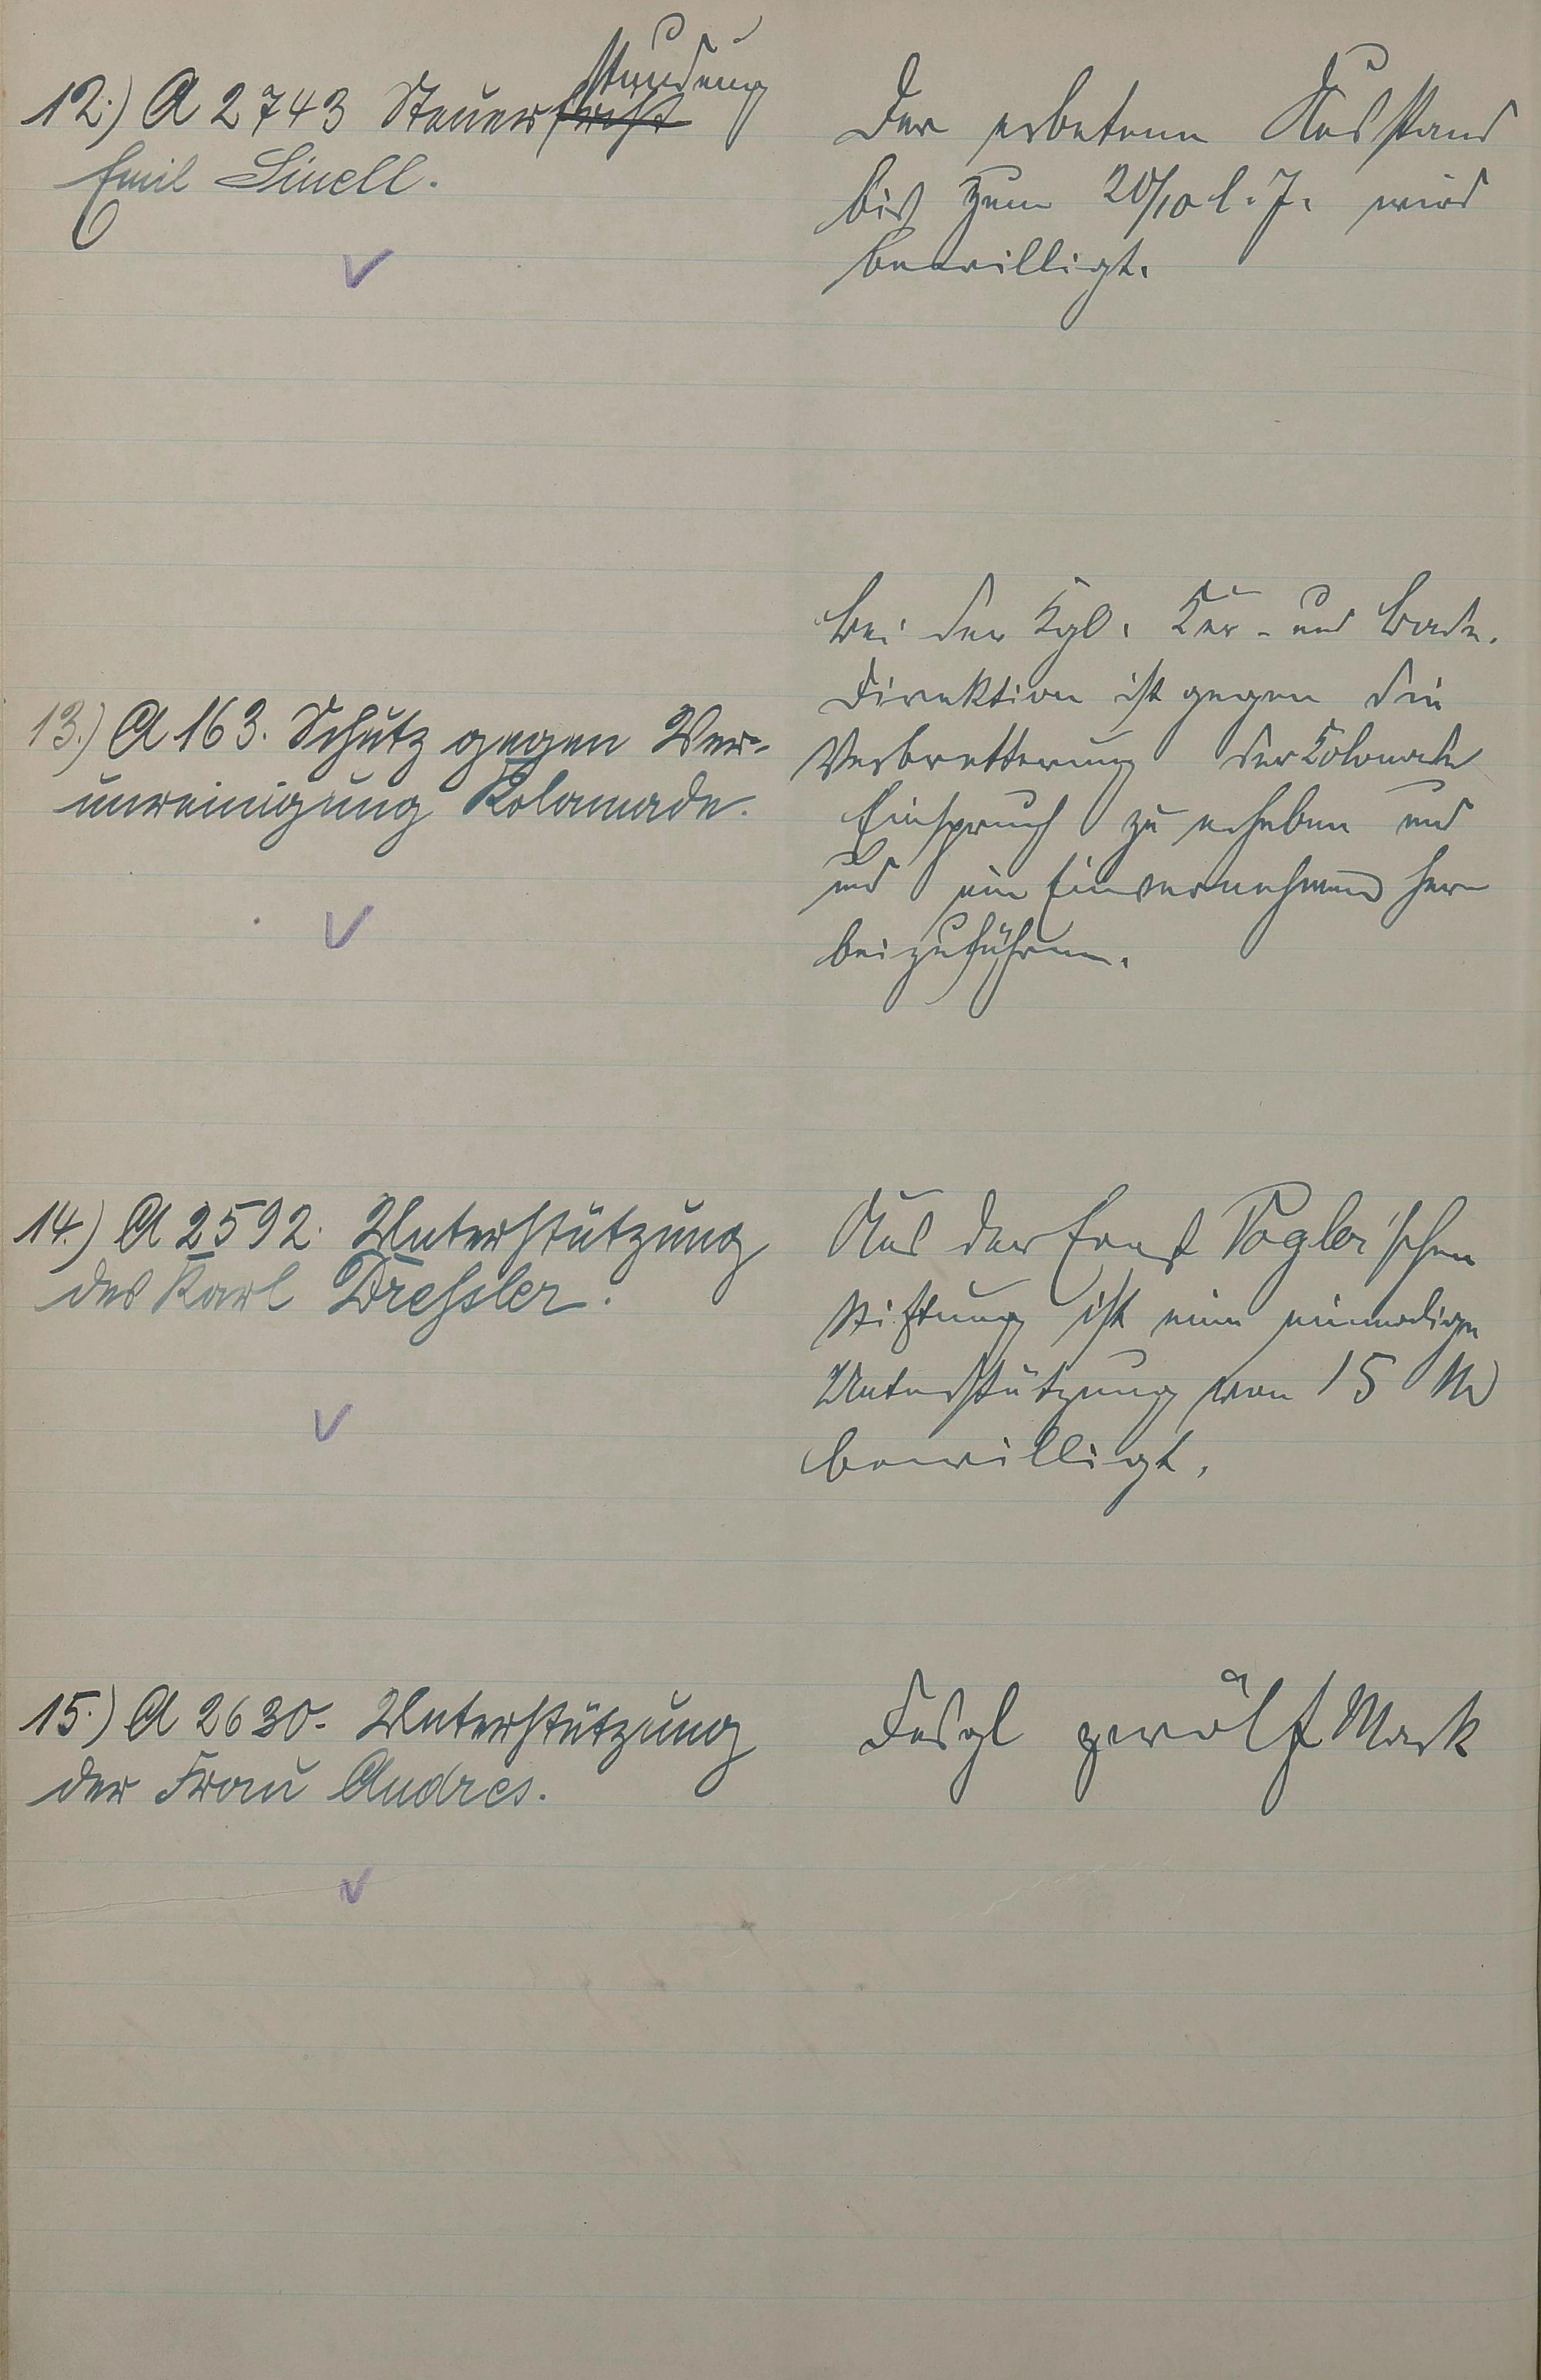 12.) A 2743 Steuerfrist stundung
Emil Sinell.
Der erbetene Ausstand
bis zum 20/10 l. J. wird
bewilligt.
13.) A 163. Schutz gegen Ver-
unreinigung Kolonnade.
Bei der Kgl. Kur- und Bade-
direktion ist gegen die
Verbretterung der Kolonade
Einspruch zu erheben und
und ein Einvernehmen her
beizuführen.
14.) A 2592. Unterstützung
des Karl Dressler.
Aus der Ernst Vogler'schen
Stiftung ist eine einmalige
Unterstützung von 15 M
bewilligt.
15.) A 2630. Unterstützung
der Frau Andres.
Desgl zwölf Mark